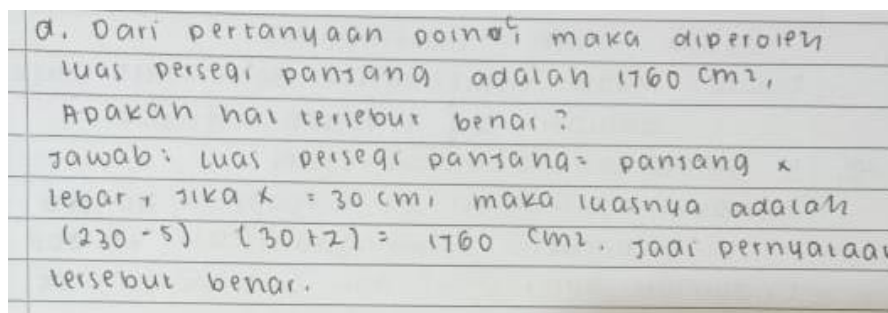 d. Dari pertanyaan poin c, maka diperoleh
luas persegi panjang adalah 1760 cm²,
Apakah hal tersebut benar?
Jawab: Luas persegi panjang = panjang x
lebar, Jika x = 30 cm, maka luasnya adalah
(230 - 5) (30 + 2) = 1760 cm². Jadi pernyataan
tersebut benar.